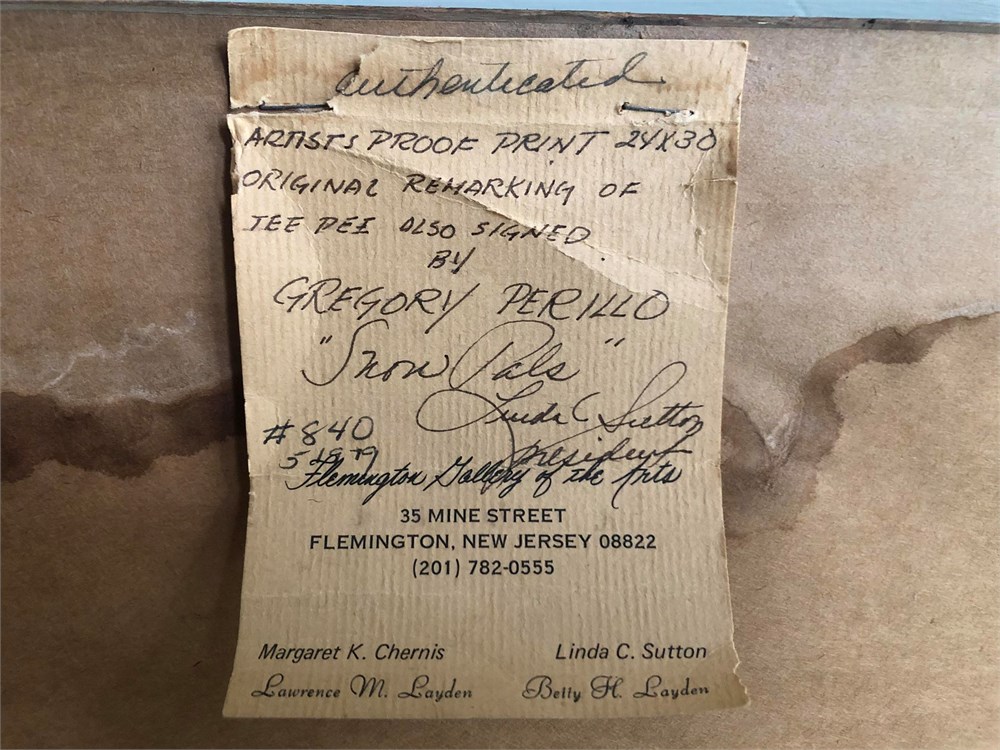 authenticated
ARTISTS PROOF PRINT 24X30
ORIGINAL REMARKING OF
TEE PEE ALSO SIGNED
BY
GREGORY PERILLO
"Snow Pals"
Linda C Sutton
#840
president
5-18-79
Flemington Gallery of the Arts
35 MINE STREET
FLEMINGTON, NEW JERSEY 08822
(201) 782-0555
Margaret K. Chernis
Linda C. Sutton
Lawrence M. Layden
Betty H. Layden